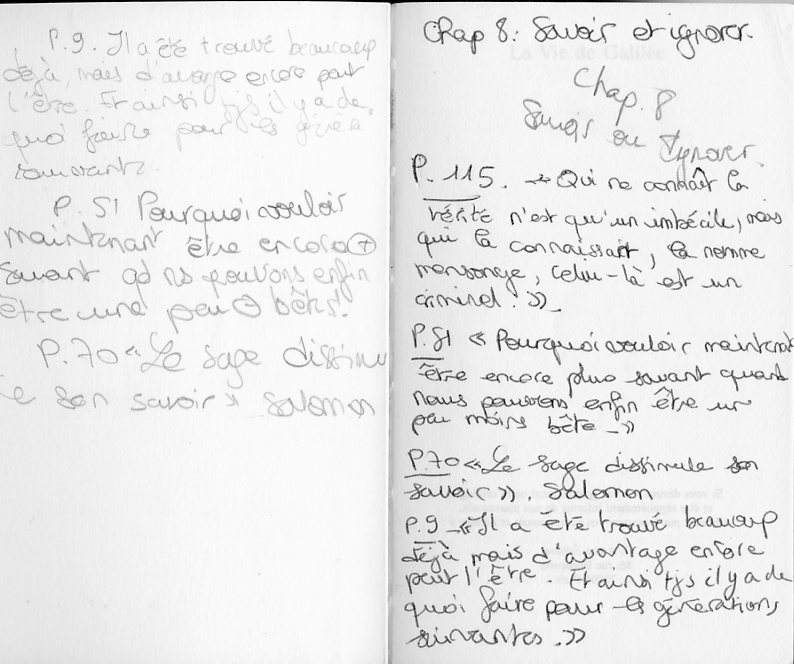 P.9. Il a été trouvé beaucoup
déjà, mais d'avantage encore peut
l'être. Et ainsi tjs il y a de
quoi faire pour les généra
suivants.
P. 51 Pourquoi vouloir
maintenant être encore ⊕
savant qd ns pouvons enfin
être une peu ⊖ bêts!
P.70 « Le sage dissimu
le son savoir » Salomon
Chap 8: Savoir et ignorer.
La Vie de Galilée
Chap. 8
Savoir ou Ignorer.
P. 115. → Qui ne connaît la
vérité n'est qu'un imbécile, mais
qui la connaissant, la nomme
mensonge, celui-là est un
criminel! »
P. 51 « Pourquoi vouloir maintenant
être encore plus savant quand
nous pouvons enfin être un
peu moins bête - »
P.70 « Le sage dissimule son
savoir ». Salomon
P.9 « Il a été trouvé beaucoup
déjà mais d'avantage encore
peut l'être. Et ainsi tjs il y a de
quoi faire pour les générations
suivantes. »